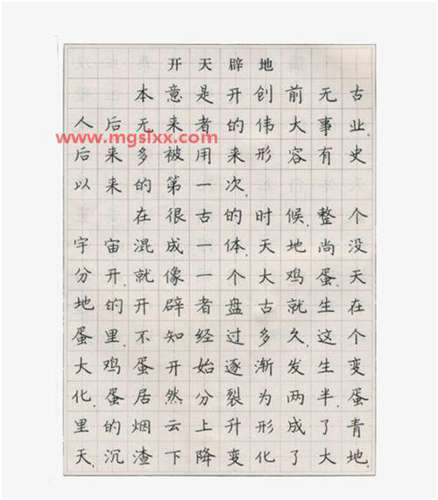 开天辟地
本意是开创前无古
人后无来者的伟大事业.
www.mgslxx.com
后来多被用来形容有史
以来的第一次.
在很古的时候.整个
宇宙混成一体.天地尚没
分开.就像一个大鸡蛋.天
地的开辟者盘古就生在
蛋里.不知经过多久.这个
大鸡蛋开始逐渐发生变
化.蛋居然分裂为两半.蛋
里的烟云上升形成了青
天.沉渣下降变化了大地.